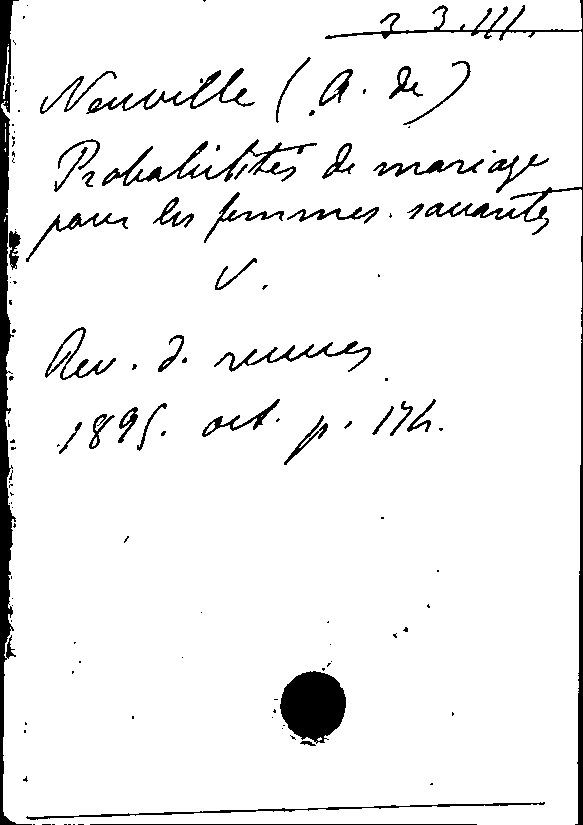 3 3.III.
Neuville (A. de)
Probabilités de mariage
pour les femmes savantes
V.
Rev. d. revues
1895. oct. p. 174.